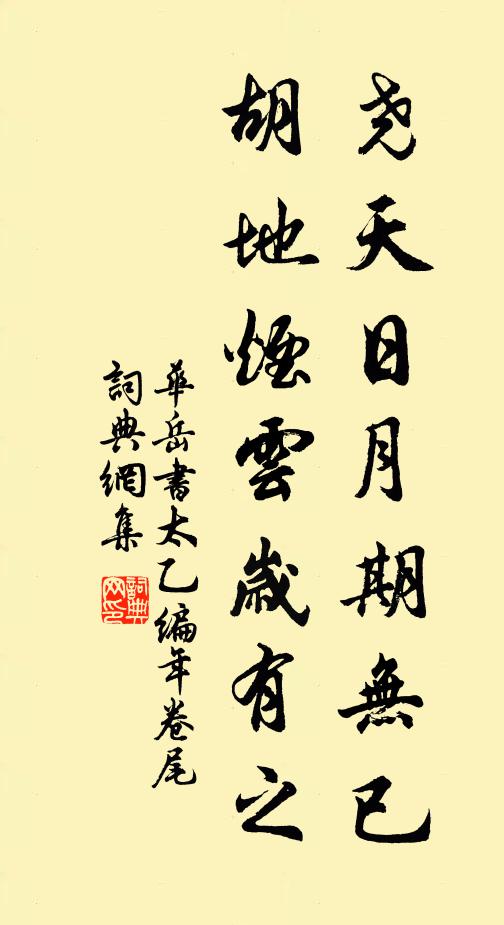 尧天日月期無已
胡地煙雲歲有之
華岳書太乙編年卷尾
詞典網集
詞典
网印